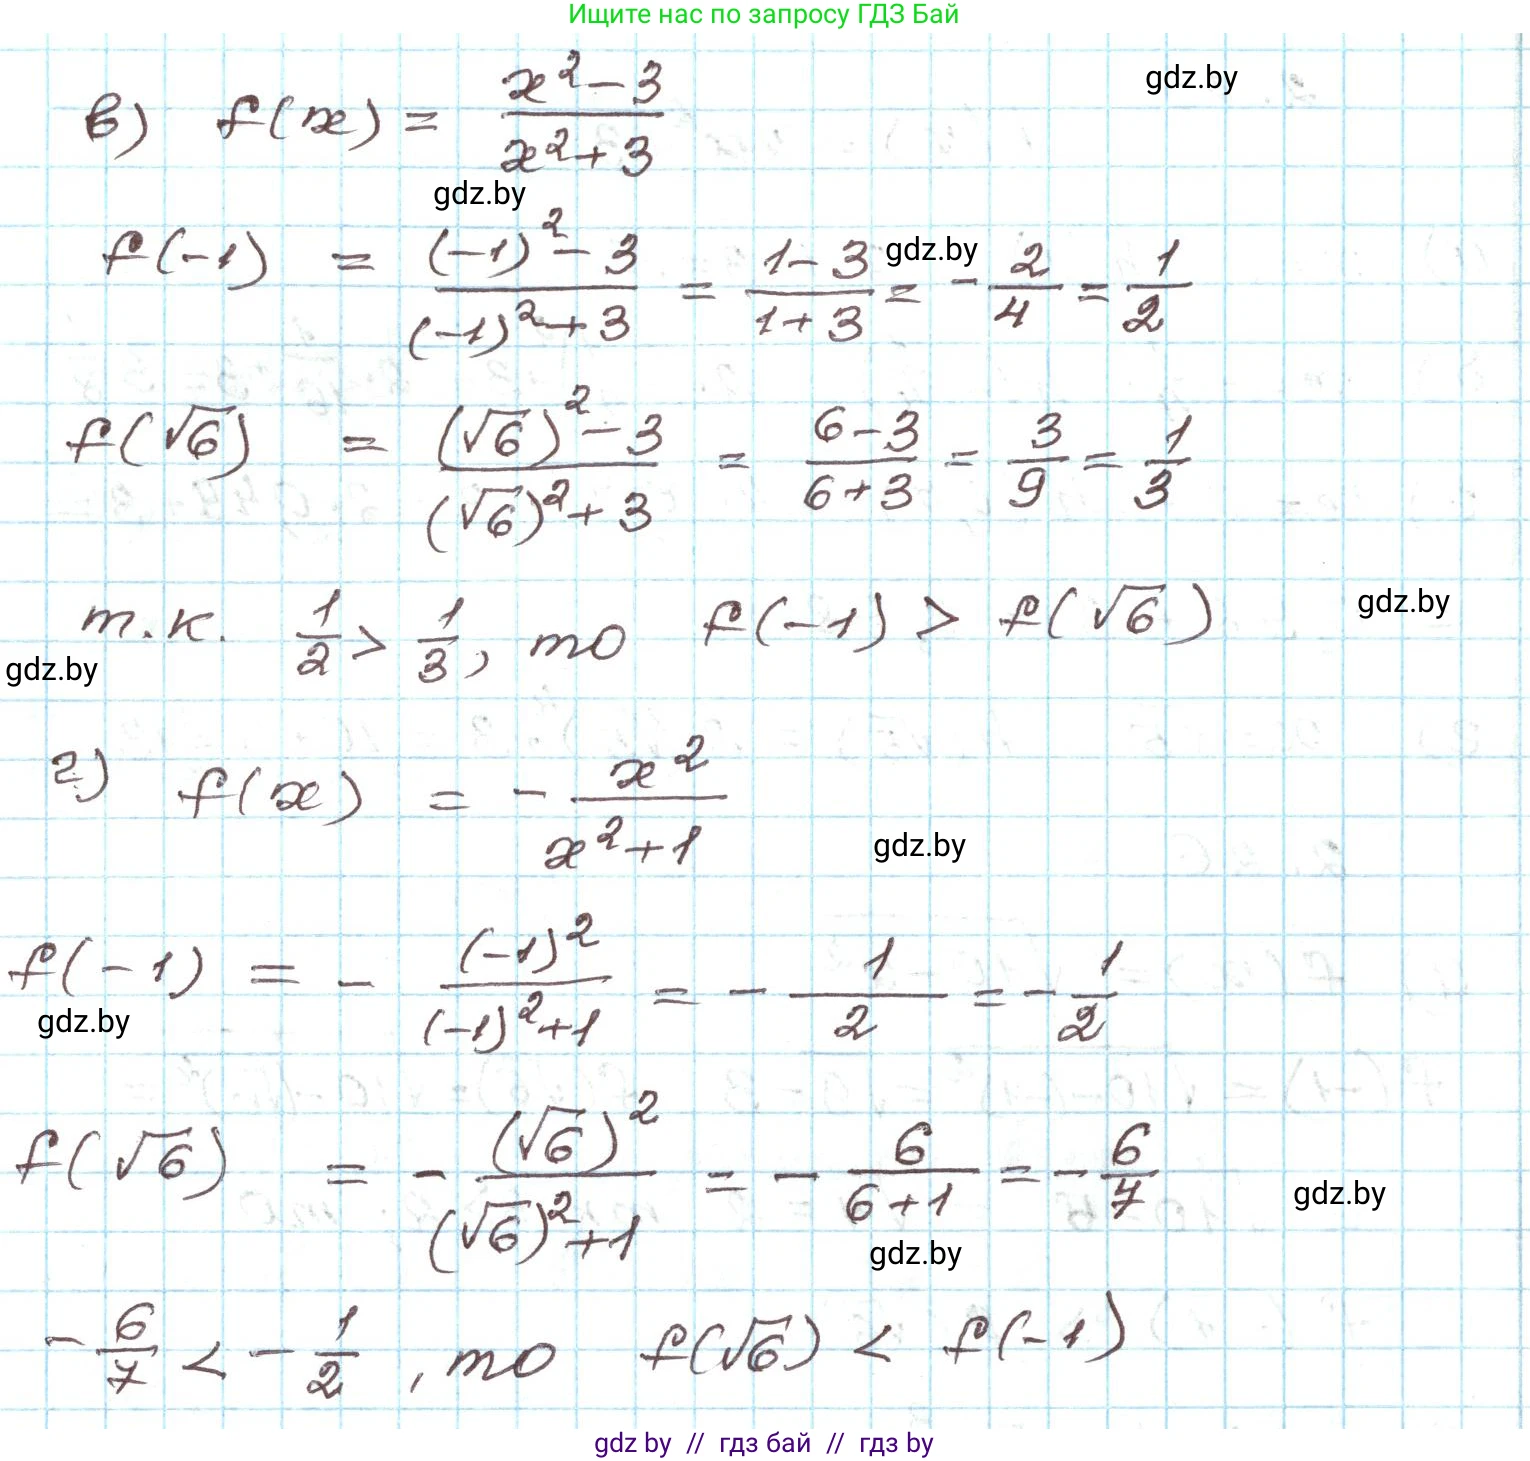 Ищите нас по запросу ГДЗ Бай
gdz.by
в) f(x) = (x² - 3)/(x² + 3)
gdz.by
f(-1) = ((-1)² - 3)/((-1)² + 3) = (1 - 3)/(1 + 3) = - 2/4 = 1/2
gdz.by
f(√6) = ((√6)² - 3)/((√6)² + 3) = (6 - 3)/(6 + 3) = 3/9 = 1/3
т.к. 1/2 > 1/3, то f(-1) > f(√6)
gdz.by
gdz.by
г) f(x) = - x²/(x² + 1)
gdz.by
f(-1) = - (-1)²/((-1)² + 1) = - 1/2 = - 1/2
gdz.by
f(√6) = - (√6)²/((√6)² + 1) = - 6/(6 + 1) = - 6/7
gdz.by
gdz.by
- 6/7 < - 1/2, то f(√6) < f(-1)
gdz by // гдз бай // гдз by